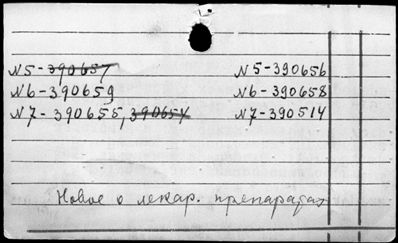 N5-390657 N5-390656
N6-390659 N6-390658
N7-390655, 390654 N7-390514
Новое о лекар. препаратах